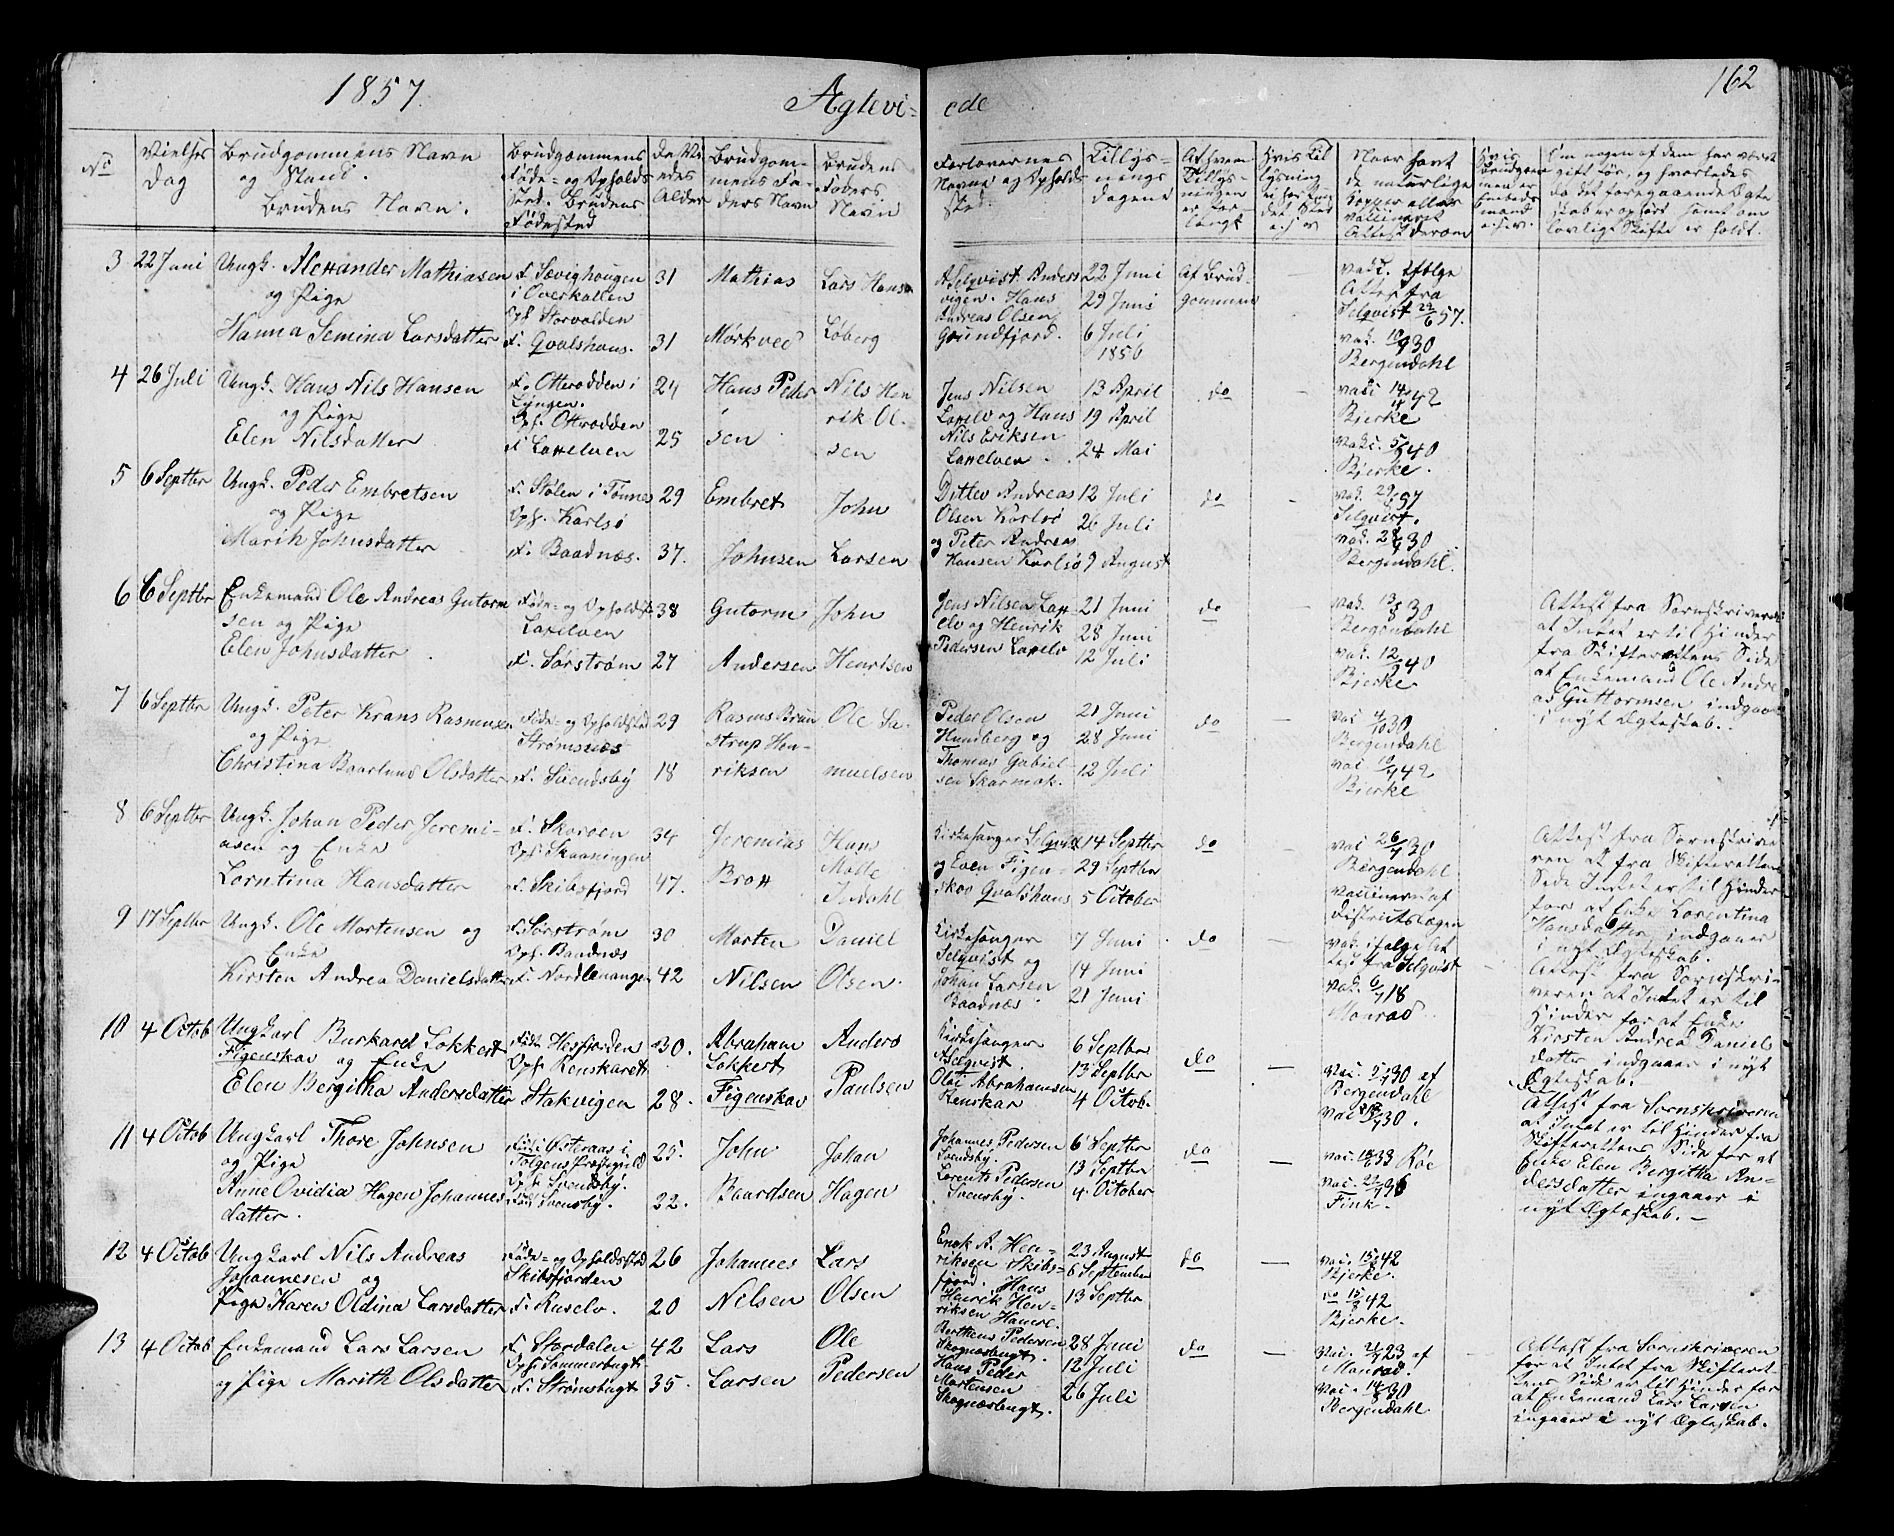 1857. Ægtevi=
ede 162
No
Vielses
Dag
Brudgommens Navn
og Stand.
Brudens Navn.
Brudgommens
Føde= og Opholds
Sted. Brudens
Fødested
De Vi
edes
Alder
Brudgom=
mens Fa=
ders Navn
Brudens
Faders
Navn
Forlovernes
Navne og Opholds
sted
Tillys=
nings
dagene
Af hvem
Tillys=
ningen
er for=
langt
Hvis Til
lysning
Naar havt
de naturlige
Kopper eller
vaccineret
Attest derom
Hvis
Brudgom
men er
Embeds
mand
o.s.v.
Om nogen af dem har været
gift før, og hvorledes
da det foregaaende Ægte
skab er ophørt samt om
lovligt Skifte er holdt.
3 22 Juni Ungk. Alexander Mathiasen
og Pige
Hanna Semina Larsdatter
f. Sævighougen
i Overhallen
Oph. Storvolden
f. Qvalshaus.
31
31
Mathias
Mørkved
Lars Hans
Løberg
Selqvist Anders
vigen. Hans
Andreas Olsen
Grundfjord.
22 Juni
29 Juni
6 Juli
1856
Af Brud=
gommen
vacc. ifølge
Attest fra
Selqvist 22/6 57.
Bergendahl
4 26 Juli Ungk. Hans Nils Hansen
og Pige
Elen Nilsdatter
f. Otterodden i
Lyngen.
Oph. Otterodden
f. Laxelven
24
25
Hans Peder
sen
Nils Hen
rik Ol.
sen
Jens Nilsen
Laxelv og Hans
Nils Eriksen
Laxelven.
13 April
19 April
24 Mai
do
Bjerke
vac. 5/9 40
Bjerke.
5 6 Septbr Ungk. Peder Embretsen
og Pige
Marih Johnsdatter
f. Stølen i Tønnes
Oph. Karlsø
f. Baadnæs.
29
37.
Embret
Johnsen
John
Larsen
Ditlev Andreas
Olsen Karlsø
og Peter Andreas
Hansen Karlsø
12 Juli
26 Juli
9 August
do
Selqvist.
Bergendahl.
6 6 Septbr Enkemand Ole Andreas Gutorm
sen og Pige
Elen Johnsdatter
Føde= og Opholdst
Laxelven
f. Sørstrøm
38
27
Gutorm
Andersen
John
Henriksen
Jens Nilsen Lax
elv og Henrik
Pedersen Laxelv
21 Juni
28 Juni
12 Juli
do
Bergendahl
vac. 12/9 40
Bjerke
Attest fra Sorenskriveren
at Intet er til Hinder
fra Skifterettens Side
at Enkemand Ole Andre
as Guttormsen indgaar
i nyt Ægteskab.
7 6 Septbr Ungk. Peter Krans Rasmusen
og Pige
Christina Baarlund Olsdatter
Føde= og Opholdsted
Strømsnæs
f. Svendsby
29
18
Rasmus Brun
strup Hen=
riksen
Ole Sa=
muelsen
Peder Olsen
Hundberg og
Thomas Gabriel
sen Skarmok.
21 Juni
28 Juni
12 Juli
do
vac 4/10 30
Bergendahl
Bjerke
8 6 Septbr Ungk. Johan Peder Jeremi=
asen og Enke
Lorntina Hansdatter
f. Skoroen
Oph. Skaaningen
f. Skibsfjord
34
47.
Jeremias
Brox
Hans
Molle
Indahl
Kirkesanger Selqvist
og Even Figen=
skov Qvalshaus
14 Septbr
29 Septbr
5 October
do
vac 26/7 30
Bergendahl
vaccineret af
Districtslægen
Attest fra Sornskrive
ren at fra Skifterettens
Side Intet er til Hinder
for at Enke Lorentina
Hansdatter indgaaer
i nyt Ægteskab.
9 17 Septbr Ungk. Ole Mortensen og
Enke
Kirsten Andrea Danielsdatter
f. Sørstrøm
Oph. Baadnæs
f. Nordlenangen
30
42
Morten
Nilsen
Daniel
Olsen.
Kirkesanger
Selqvist og
Johan Larsen
Baadnæs
7 Juni
14 Juni
21 Juni
do
vac. ifølge At
test fra Selqvist
vac. 6/7 18
Monrad.
Attest fra Sornskri=
veren at Intet er til
Hinder for at Enke
Kirsten Andrea Daniels
datter indgaaer i nyt
Ægteskab.
10 4 Octob Ungkarl Burkard Lokkert
Figenskav og Enke
Elen Bergitha Andersdatter
Født Hesfjorden
Oph. Renskaret
Stakvigen
30.
28.
Abraham
Lokkert
Figenskav
Anders
Paulsen
Kirkesanger
Selqvist.
Olai Abrahamsen
Renskar
6 Septbr
13 Septbr
4 Octob.
do
Bergendahl
Attest fra Sornskriveren
at Intet er til Hinder fra
Skifterettens Side for at
Enke Elen Bergitha An=
dersdatter ingaaer i
nyt Ægteskab. —
11 4 Octob Ungkarl Thore Johnsen
og Pige
Anne Ovidia Hagen Johannes
datter.
Født i Østeraas i
Tolgens Præstegield
Oph. Svendsby.
Født Svensby.
25.
22.
John
Baardsen
Johan
Hagen
Johannes Pedersen
Svendsby.
Lorents Pedersen
Svensby.
6 Septbr
13 Septbr
4. October
do
Fink.
12 4 Octob Ungkarl Nils Andreas
Johannesen og
Pige Karen Oldina Larsdatter
Føde= og Opholdssted
Skibsfjorden
f. Ruselv.
26
20
Johannes
Nelsen
Lars
Olsen
Enok A. Hen=
riksen Skibs=
fjord. Hans
Henrik Hen=
riksen Hamre.
23 August
6 September
13 Septbr
do
Bjerke.
do 15/8 42
Bjerke.
13 4 Octob Enkemand Lars Larsen
og Pige Marith Olsdatter
f. Stordalen
Oph. Sommerbugt
f. Strømsbugt
42
35.
Lars
Larsen
Ole
Pedersen
Berthens Pedersen
Skognæsbugt.
Hans Peder
Mortensen
Skognæsbugt.
28 Juni
12 Juli
26 Juli
do
Monrad.
Bergendahl.
Attest fra Sornskriveren
for at Intet fra Skifteret
tens Side er til Hinder for
at Enkemand Lars Larsen
ingaaer i nyt Ægteskab.